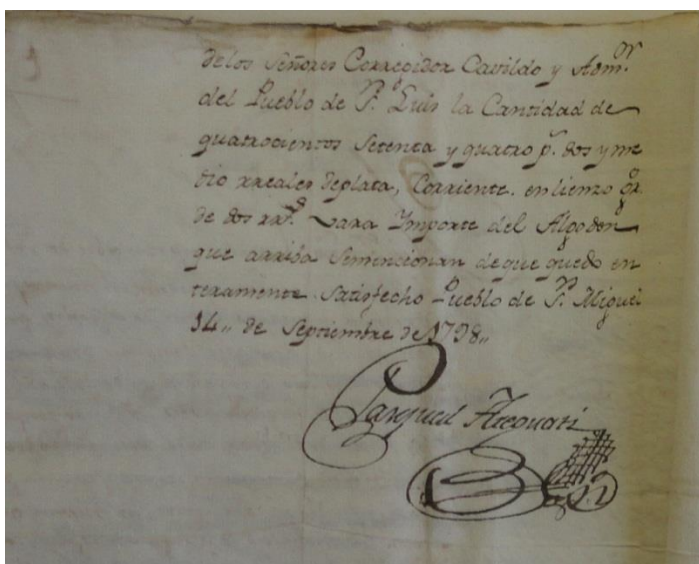 delos Señores Corregidor Cavildo y Adm.or
del Pueblo de S.n Luis la Cantidad de
quatrocientos Setenta y quatro p.s dos y me
dio rreales deplata, Corriente. en lienzo
de dos rr.s vara Importe del Algodon
que arriba Semencionan deque quedo en
teramente Satisfecho Pueblo de S.n Miguel
14,, de Septiembre de 1798,,
Pasqual Areguati